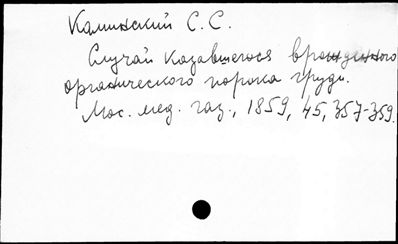 Калинский С. С.
Случай казавшегося врожденного
органического порока груди.
Мос. мед. газ., 1859, 45, 357-359.